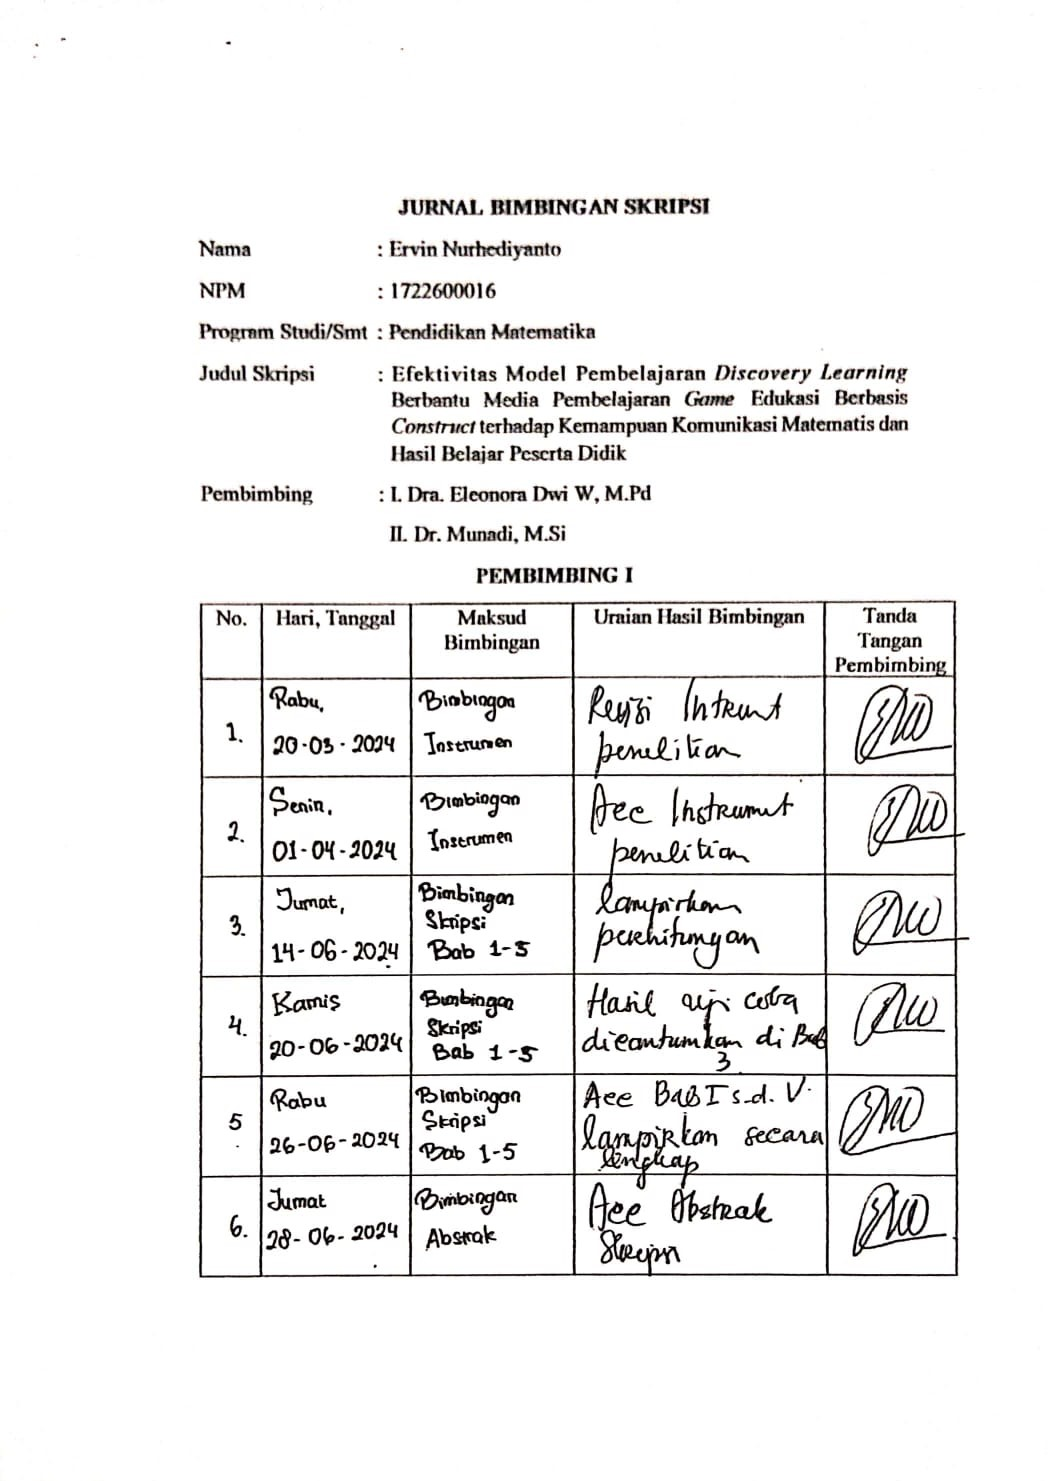 JURNAL BIMBINGAN SKRIPSI
Nama : Ervin Nurhediyanto
NPM : 1722600016
Program Studi/Smt : Pendidikan Matematika
Judul Skripsi : Efektivitas Model Pembelajaran Discovery Learning
Berbantu Media Pembelajaran Game Edukasi Berbasis
Construct terhadap Kemampuan Komunikasi Matematis dan
Hasil Belajar Peserta Didik
Pembimbing : I. Dra. Eleonora Dwi W, M.Pd
II. Dr. Munadi, M.Si
PEMBIMBING I
No. Hari, Tanggal Maksud Bimbingan Uraian Hasil Bimbingan Tanda Tangan Pembimbing
1. Rabu, 20-03-2024 Bimbingan Instrumen Revisi penelitian
2. Senin, 01-04-2024 Bimbingan Instrumen Acc Instrumut penelitian
3. Jumat, 14-06-2024 Bimbingan Skripsi Bab 1-5 lampirkan perhitungan
4. Kamis 20-06-2024 Bimbingan Skripsi Bab 1-5 Hasil uji coba dicantumkan di Bab 3
5. Rabu 26-06-2024 Bimbingan Skripsi Bab 1-5 Acc Bab I s.d. V. lampirkan secara lengkap
6. Jumat 28-06-2024 Bimbingan Absrak Acc Abstrak Skripsi